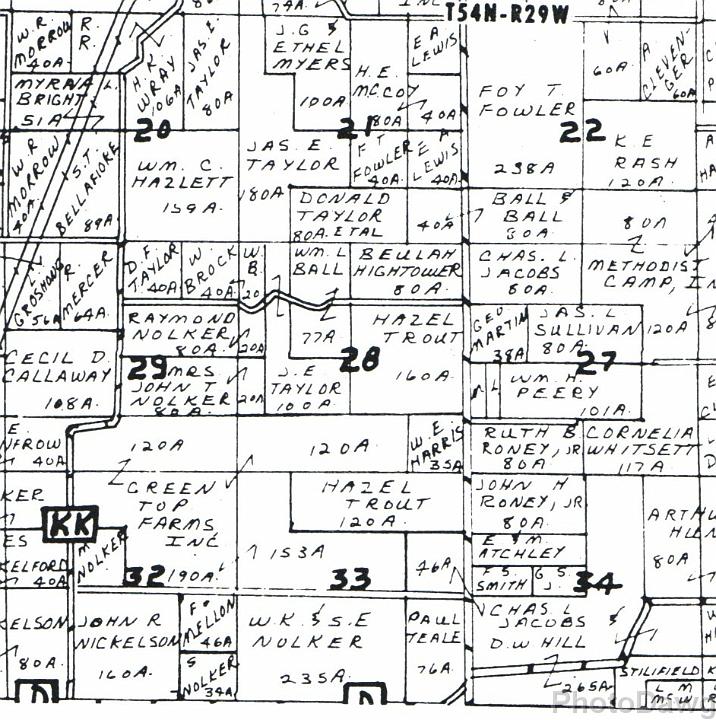 T54N-R29W
W.R.
MORROW
40A
R.
R.
H.K.
WRAY
106A
JAS. E.
TAYLOR
80A
J.G &
ETHEL
MYERS
100A
E A
LEWIS
H.E.
MCCOY
80A
40A
FOY T.
FOWLER
238A
60A
A
CLEVEN-
GER
60A
MYRNA L.
BRIGHT
51A
20
21
22
W R
MORROW
40A
S.T.
BELLAFIORE
89A
WM. C.
HAZLETT
159A.
JAS. E.
TAYLOR
180A
F T
FOWLER
40A.
E A
LEWIS
40A.
K.E
RASH
120A
DONALD
TAYLOR
80A. ETAL
40A
BALL &
BALL
80A
80A
GROSHONG
56A
R.
MERCER
64A.
D.F.
TAYLOR
40A
W.
BROCK
40A
W.
B.
20
WM. L
BALL
BEULAH
HIGHTOWER
80A.
CHAS. L.
JACOBS
80A.
METHODIST
CAMP, IN
RAYMOND
NOLKER
80A
20A
77A
HAZEL
TROUT
160A.
GEO
MARTIN
38A
JAS. L
SULLIVAN
80A
120A
29
28
27
CECIL D.
CALLAWAY
108A.
MRS
JOHN T
NOLKER
80A
20A
J.E
TAYLOR
100A
WM. H.
PEERY
101A
E.
NFROW
40A
120A
120A.
W.E.
HARRIS
35A
RUTH B
RONEY, JR
80A
CORNELIA
WHITSETT
117A
KER
ES
ELFORD
40A
KK
NOLKER
GREEN
TOP
FARMS
INC
190A.
HAZEL
TROUT
120A.
153A
46A
JOHN H
RONEY, JR
80A.
E & M
ATCHLEY
F S.
SMITH
G S.
J.
ARTHU
80A
32
33
34
ELSON
80A
JOHN R
NICKELSON
160A.
F.
MELLON
46A
S
NOLKER
34A
W.K. & S.E
NOLKER
235A
PAUL
TEALE
76A.
CHAS. L
JACOBS &
D.W HILL
265A
STILIFIELD
L M
D
D
PhotoDawg